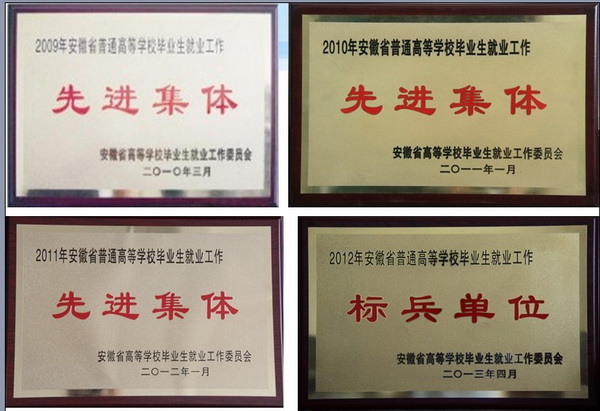 2009年安徽省普通高等学校毕业生就业工作
先进集体
安徽省高等学校毕业生就业工作委员会
二〇一〇年三月
2010年安徽省普通高等学校毕业生就业工作
先进集体
安徽省高等学校毕业生就业工作委员会
二〇一一年一月
2011年安徽省普通高等学校毕业生就业工作
先进集体
安徽省高等学校毕业生就业工作委员会
二〇一二年一月
2012年安徽省普通高等学校毕业生就业工作
标兵单位
安徽省高等学校毕业生就业工作委员会
二〇一三年四月